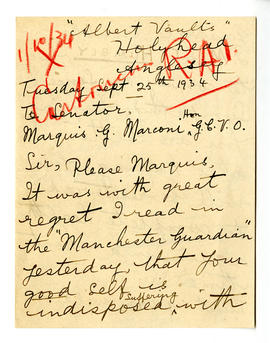 "Albert Vaults"
Holyhead
1/10/34
Anglesey
Tuesday Sept 25th 1934
To Senator.
Marquis G. Marconi Hon G.C.V.O.
Sir, Please Marquis,
It was with great
regret I read in
the "Manchester Guardian"
yesterday, that your
good self is
suffering
indisposed with